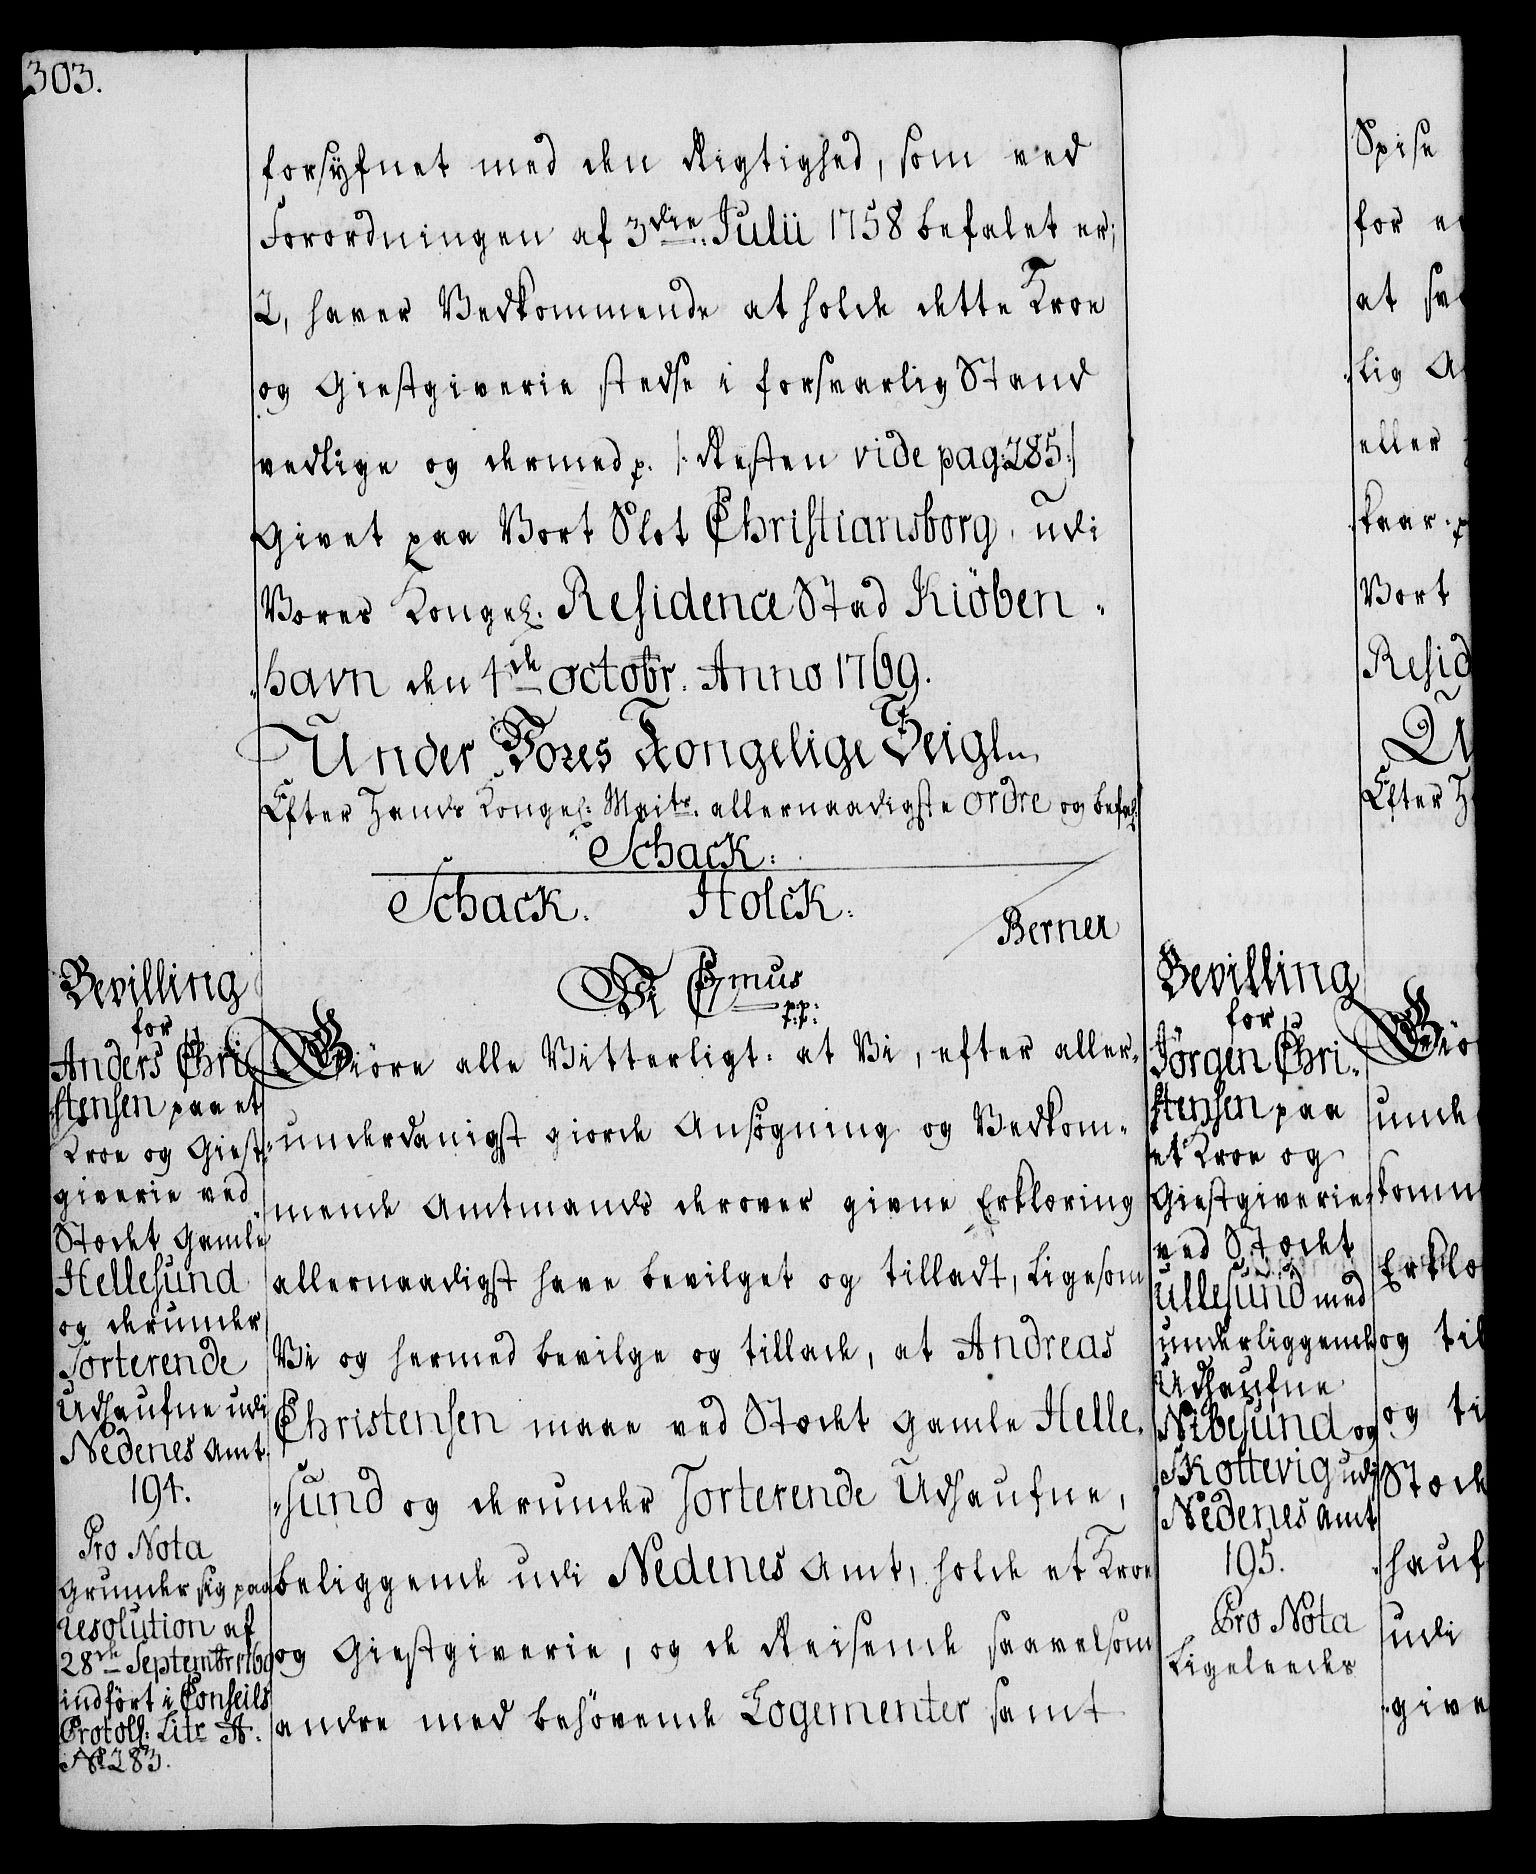 303.
forsÿfnet med den Rigtighed, som ved
Forordningen af 3die Julii 1758 befalet er;
2, haver Vedkommende at holde dette Kroe
og Giestgiverie stedse i forsvarlig Stand
vedlige og dermed p. /: Resten vide pag: 285:/
Givet paa Vort Slot Christiansborg, udi
Vores Kongel. Residence Stad Kiöben-
-havn den 4de Octobr. Anno 1769.
Under Vores Kongelige Zeigl
Efter Hands Kongel: Maits. allernaadigste ordre og befal:
Schack:
Schack. Holck:
Berner
Vi C7mus
p:p:
t:t:
Bevilling
for
Anders Chri-
stensen paa et
Kroe og Giest-
giverie ved
Stædet Gamle
Hellesund
og derunder
Sorterende
Udhaufne udi
Nedenes Amt.
194.
Pro Nota
Grunder sig paa
resolution af
28de Septembr 1769
indfört i Conseils
Protoll: Litr A:
No 283.
Giöre alle Vitterligt: at Vi, efter aller-
-underdanigst giorde Ansøgning og Vedkom-
mende Amtmands derover givne Erklæring
allernaadigst have bevilget og tilladt, ligesom
Vi og hermed bevilge og tillade, at Andreas
Christensen maae ved Stædet Gamle Helle-
-sund og derunder Sorterende Udhaufne,
beliggende udi Nedenes Amt, holde et Kroe
og Giestgiverie, og de Reisende saavelsom
andre med behövende Logementer samt
Bevilling
for
Jörgen Chri-
stensen paa
et Kroe og
Giestgiverie
ved Stædet
Ullesund med
underliggende
Udhaufne
Nibesund og
Skottevig udi
Nedenes Amt
195.
Pro Nota
Ligeleedes
Spise
for
at
lig
eller
skaar. p
Vort
Resid
Efter
Giö
unde
komm
Erklæ
og til
og ti
Stæde
hauf
udi
give